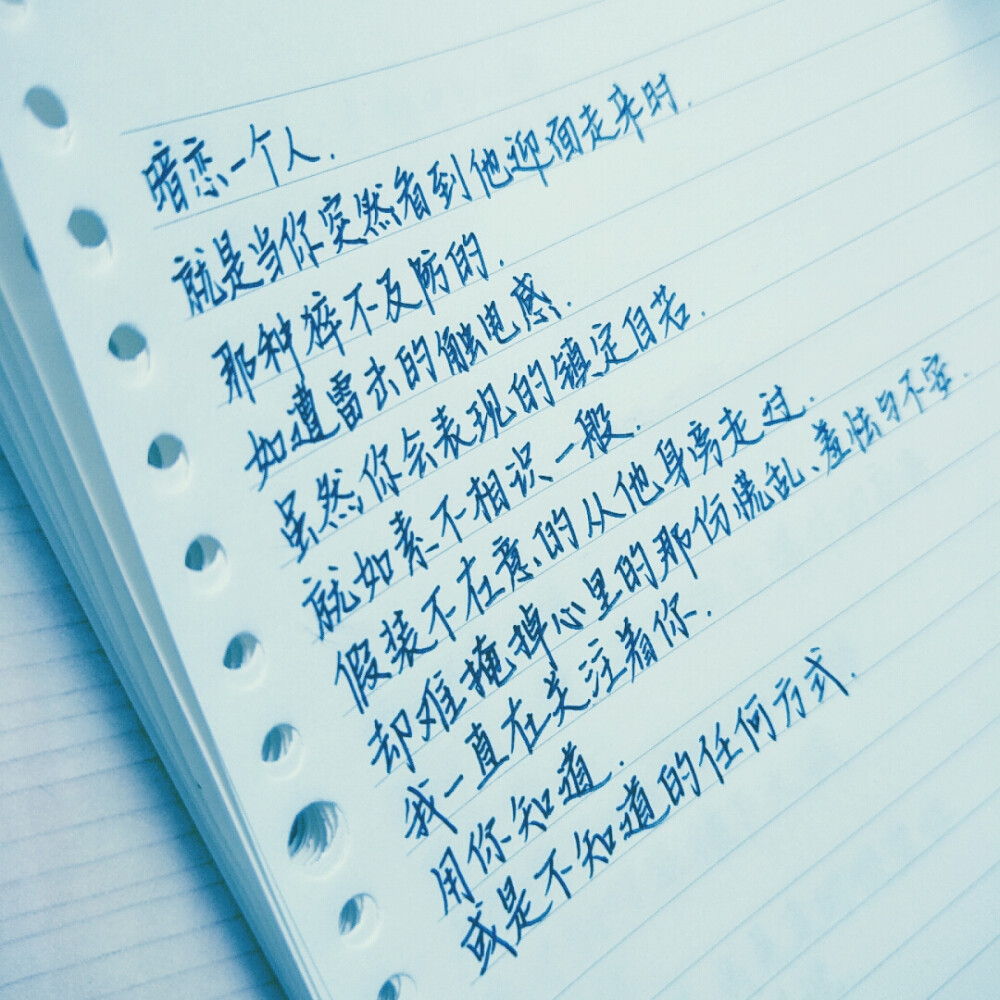 暗恋一个人.
就是当你突然看到他迎面走来时.
那种猝不及防的.
如遭雷击的触电感.
虽然你会表现的镇定自若.
就如素不相识一般.
假装不在意的从他身旁走过.
却难掩掉心里的那份慌乱、羞怯与不安.
我一直在关注着你.
用你知道.
或是不知道的任何方式.